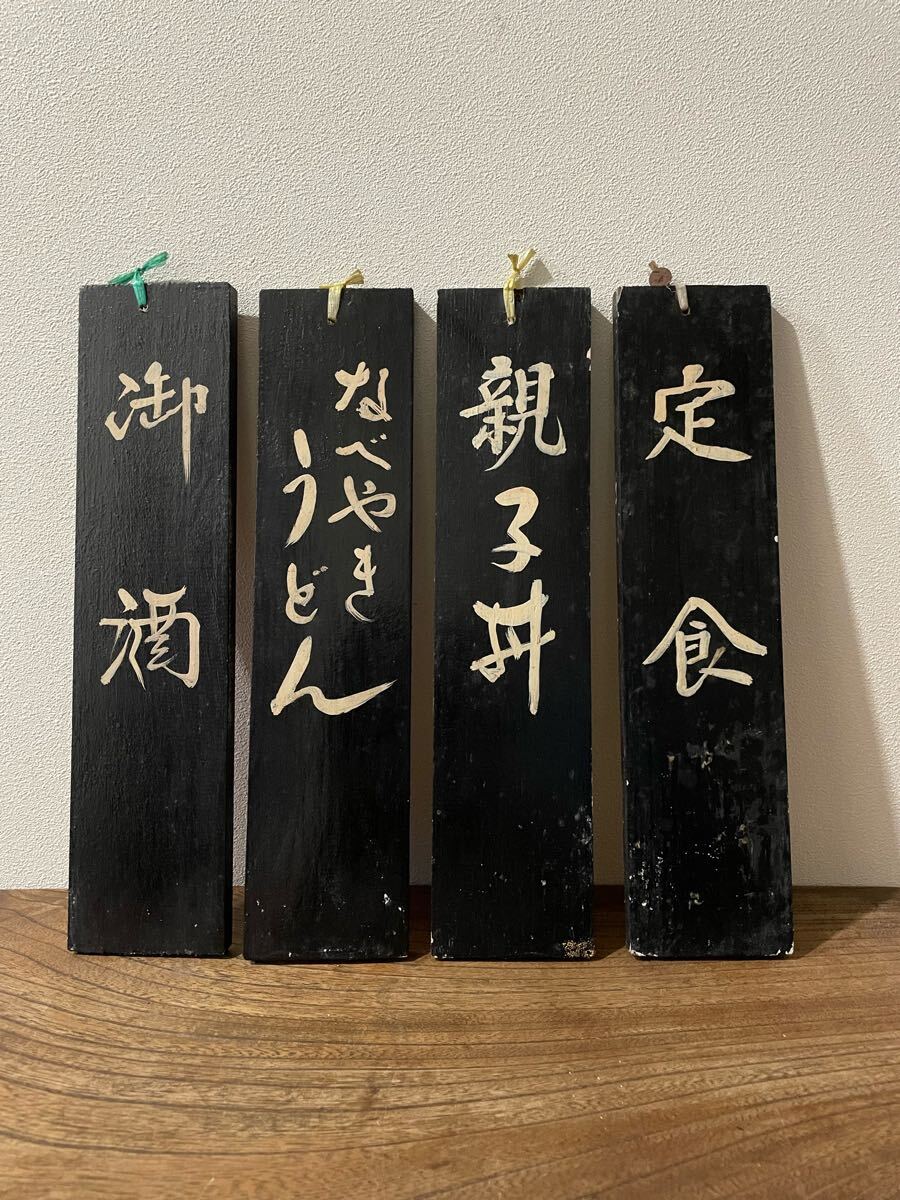 定食
親子丼
なべやき
うどん
御酒